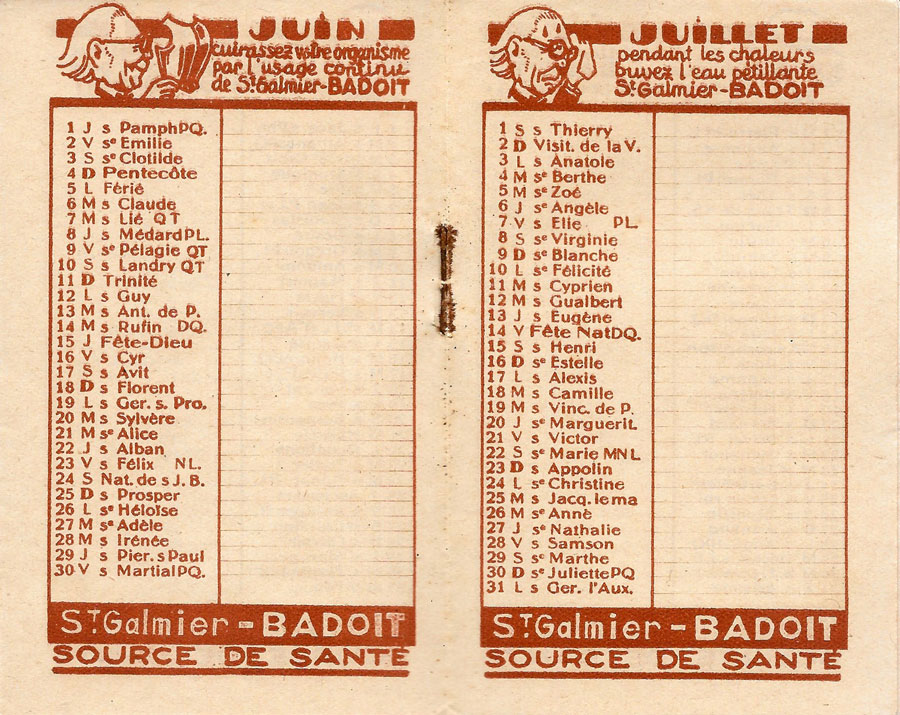 JUIN
cuirassez votre organisme
par l'usage continu
de St Galmier-BADOIT
1 J s Pamph PQ.
2 V se Emilie
3 S se Clotilde
4 D Pentecôte
5 L Férié
6 M s Claude
7 M s Lié QT
8 J s Médard PL.
9 V se Pélagie QT
10 S s Landry QT
11 D Trinité
12 L s Guy
13 M s Ant. de P.
14 M s Rufin DQ.
15 J Fête-Dieu
16 V s Cyr
17 S s Avit
18 D s Florent
19 L s Ger. s. Pro.
20 M s Sylvère
21 M se Alice
22 J s Alban
23 V s Félix NL.
24 S Nat. de s J. B.
25 D s Prosper
26 L se Héloïse
27 M se Adèle
28 M s Irénée
29 J s Pier. s Paul
30 V s Martial PQ.
ST Galmier-BADOIT
SOURCE DE SANTÉ
JUILLET
pendant les chaleurs
buvez l'eau pétillante
St Galmier-BADOIT
1 S s Thierry
2 D Visit. de la V.
3 L s Anatole
4 M se Berthe
5 M se Zoé
6 J se Angèle
7 V s Elie PL
8 S se Virginie
9 D se Blanche
10 L se Félicité
11 M s Cyprien
12 M s Gualbert
13 J s Eugène
14 V Fête Nat DQ.
15 S s Henri
16 D se Estelle
17 L s Alexis
18 M s Camille
19 M s Vinc. de P.
20 J se Marguerit.
21 V s Victor
22 S se Marie M NL
23 D s Appolin
24 L se Christine
25 M s Jacq. le ma
26 M se Anne
27 J se Nathalie
28 V s Samson
29 S se Marthe
30 D se Juliette PQ
31 L s Ger. l'Aux.
ST Galmier-BADOIT
SOURCE DE SANTÉ